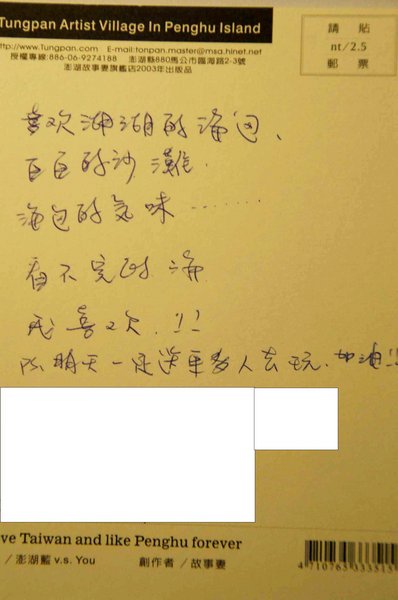 Tungpan Artist Village In Penghu Island
http://www.Tungpan.com E-mail:tonpan.master@msa.hinet.net
授權專線:886-06-9274188 澎湖縣880馬公市臨海路2-3號
澎湖故事妻旗艦店2003年出版品
請貼
nt/2.5
郵票
喜欢澎湖的海包、
百百的沙灘.
海包的氣味........
看不完的海
我喜欢.!!
明天一定送更多人去玩.加油!!
ve Taiwan and like Penghu forever
/ 澎湖藍 v.s. You 創作者 / 故事妻
4 710765 333515